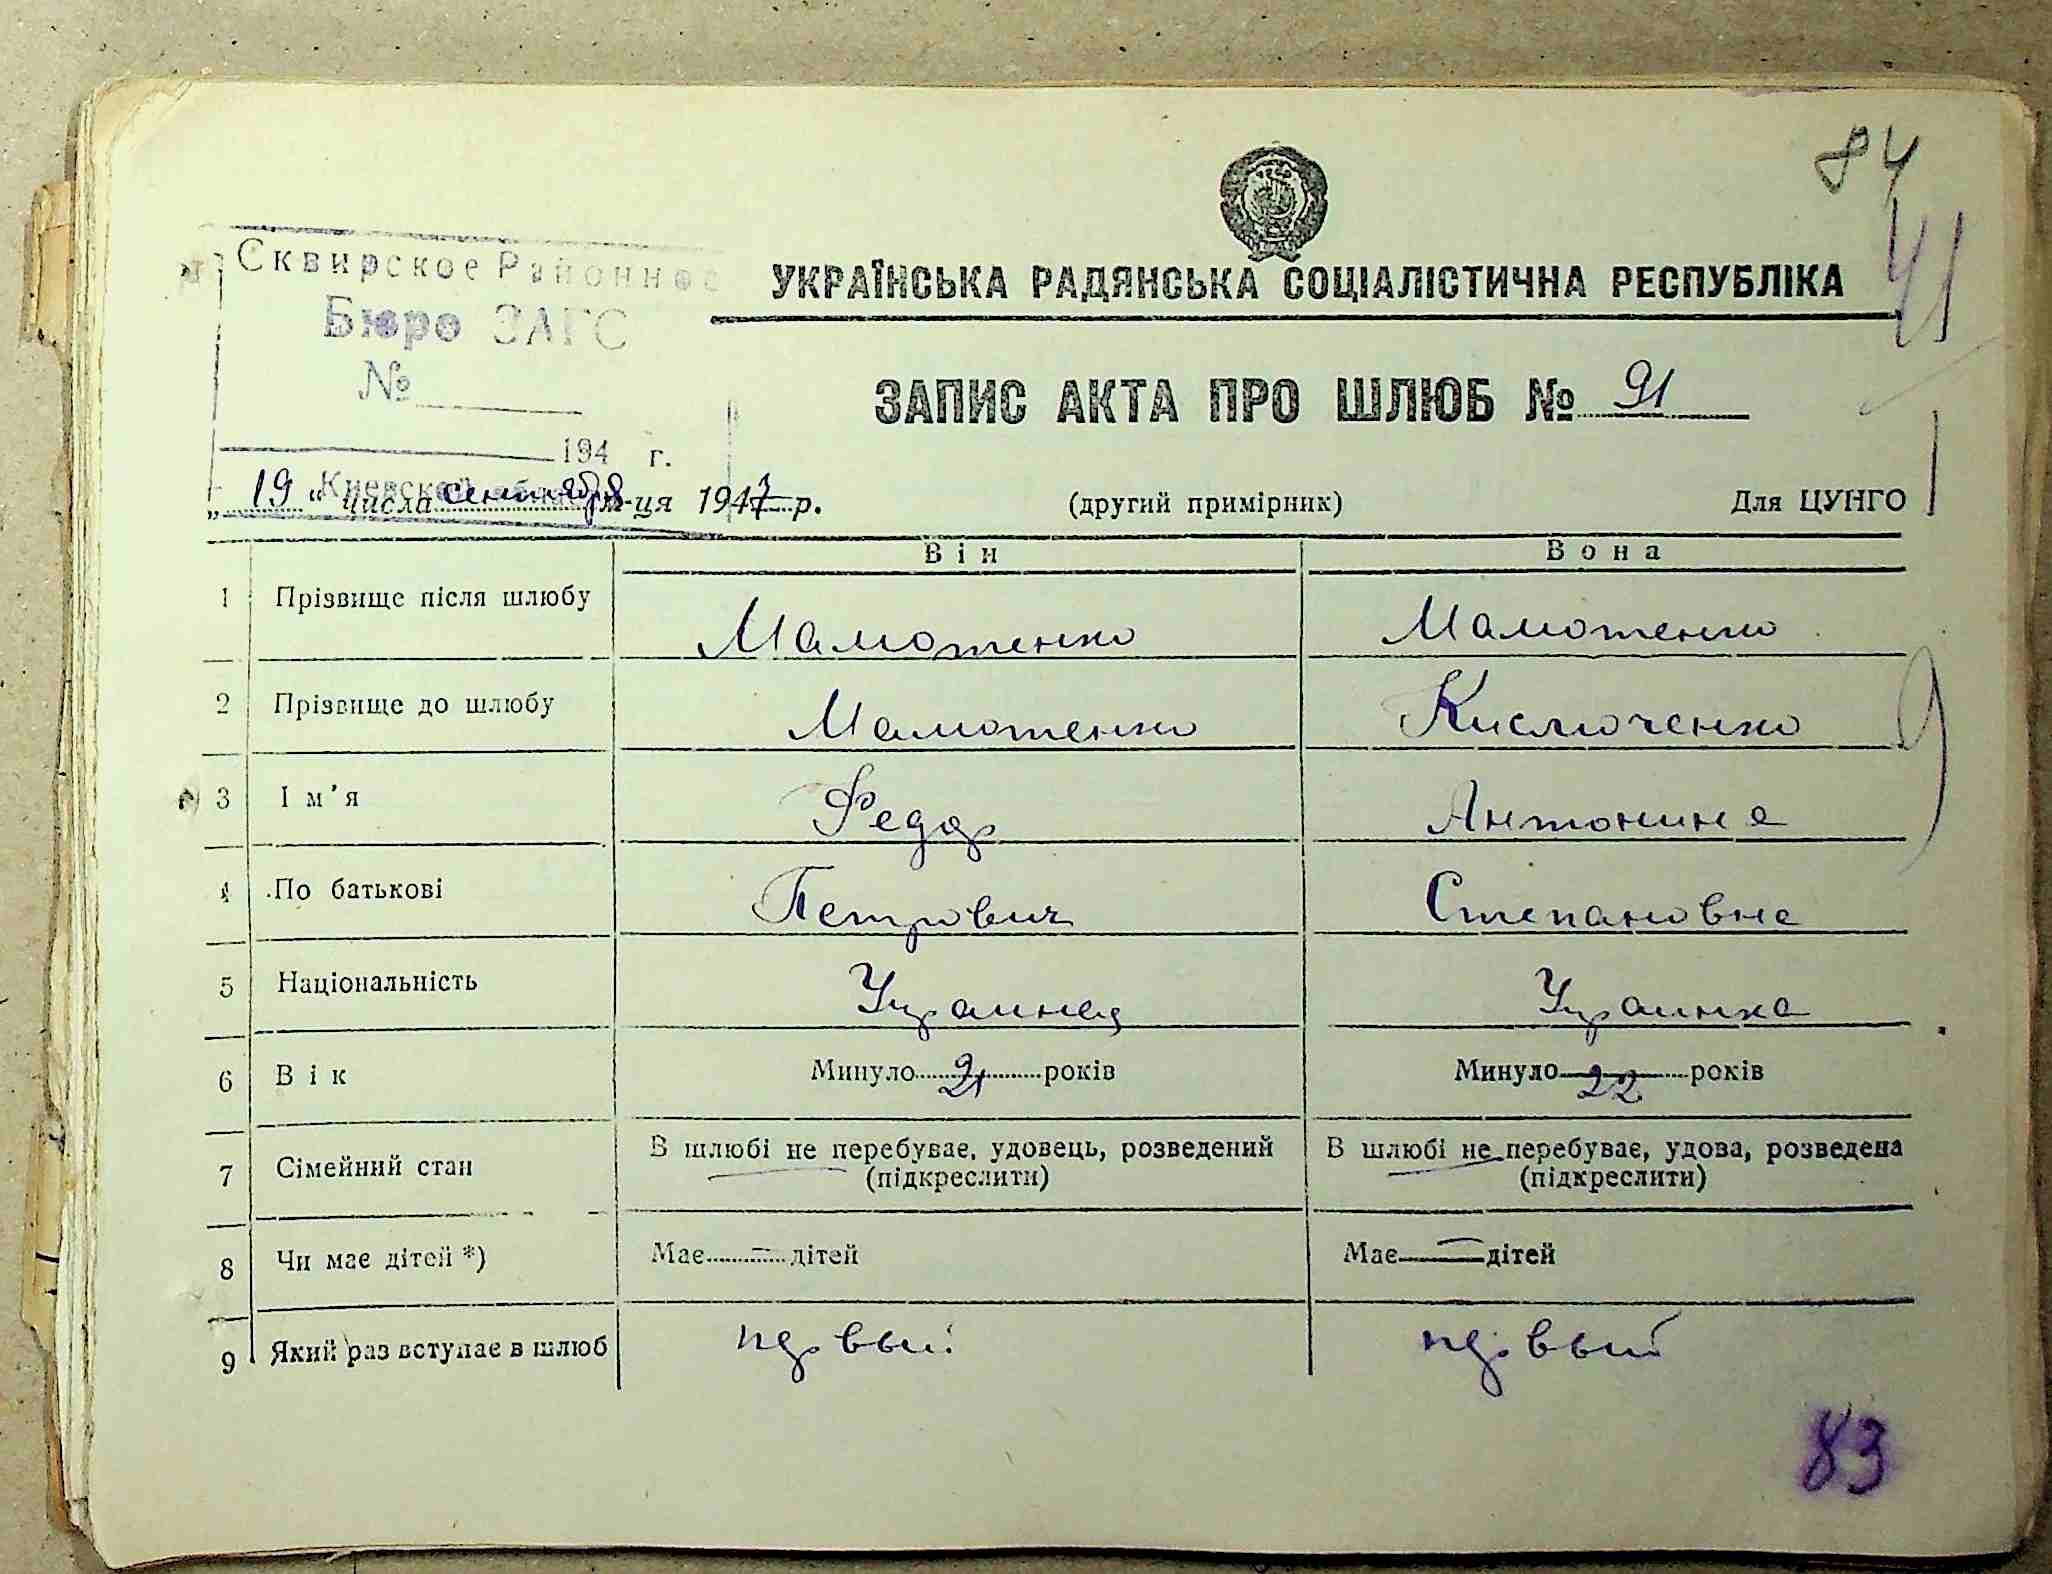 84
41
Сквирское Районное
Бюро ЗАГС
№
194 г.
УКРАЇНСЬКА РАДЯНСЬКА СОЦІАЛІСТИЧНА РЕСПУБЛІКА
ЗАПИС АКТА ПРО ШЛЮБ № 91
„19“ числа сентября м-ця 1947 р. (другий примірник) Для ЦУНГО
Він Вона
1 Прізвище після шлюбу Мамотенко Мамотенко
2 Прізвище до шлюбу Мамотенко
3 Ім'я Федор Антонина
4 По батькові Петрович Степановна
5 Національність Украинец Украинка
6 Вік Минуло 21 років Минуло 22 років
7 Сімейний стан В шлюбі не перебуває, удовець, розведений (підкреслити) В шлюбі не перебуває, удова, розведена (підкреслити)
8 Чи має дітей *) Має — дітей Має — дітей
9 Який раз вступає в шлюб первый первый
83